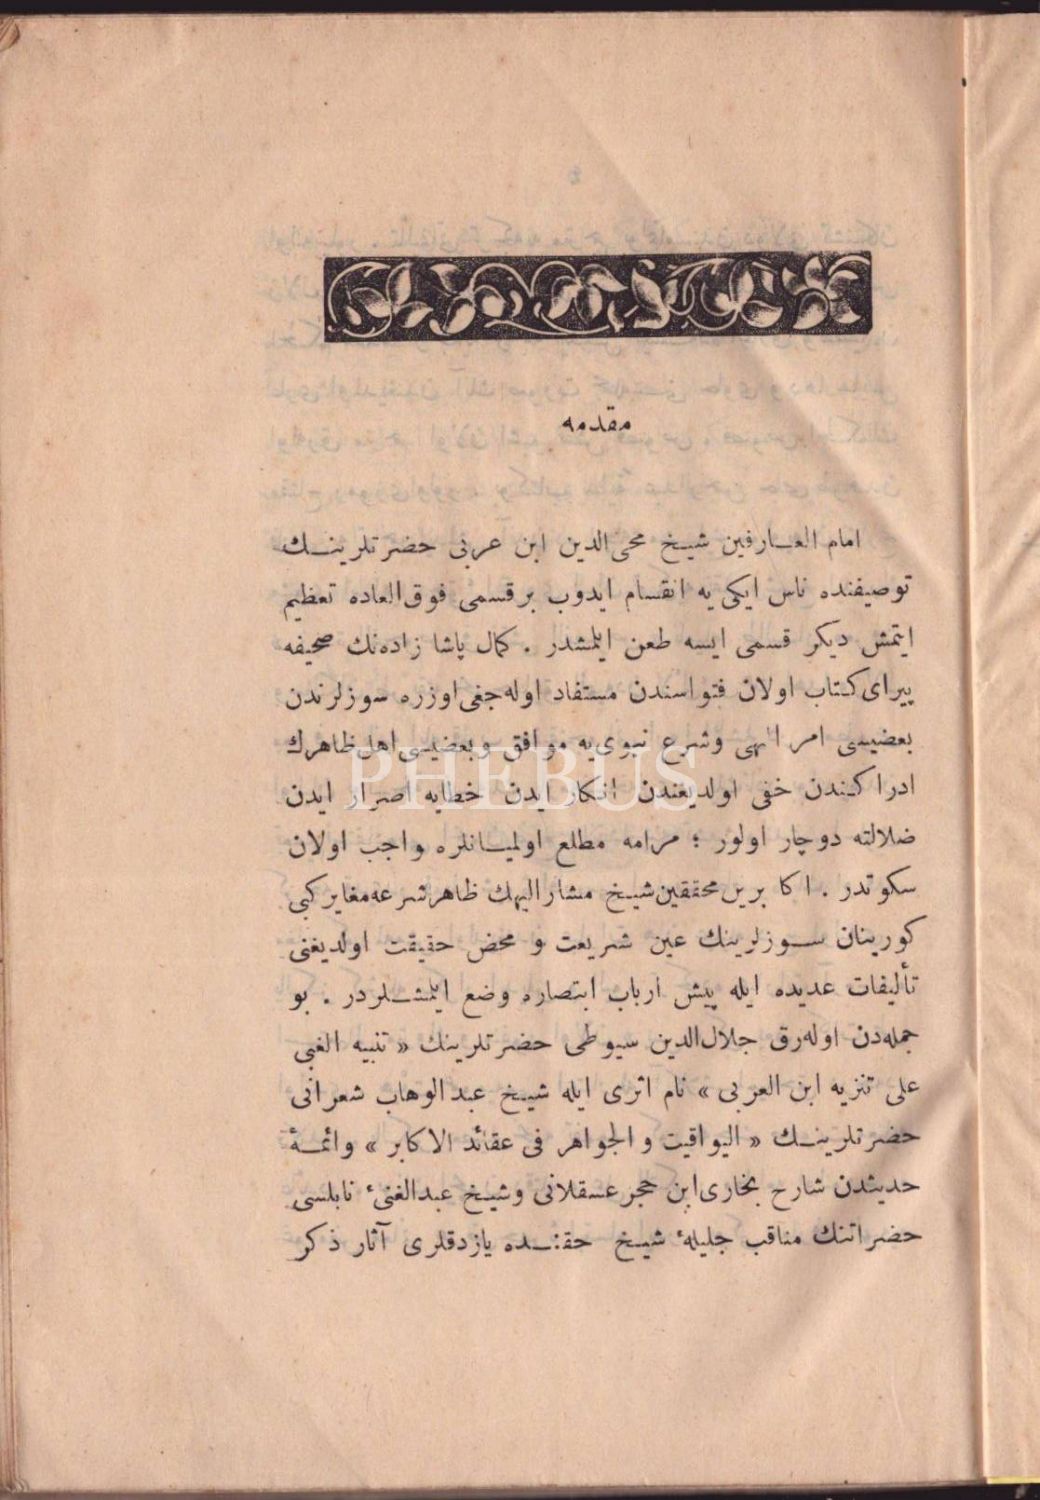 مقدمه
امام العارفين شيخ محى‌الدين ابن عربى حضرتلرينك
توصيفنده ناس ايكى يه انقسام ايدوب برقسمى فوق‌العاده تعظيم
ايتمش ديكر قسمى ايسه طعن ايلمشدر . كمال پاشا زاده‌نك صحيفه
پيراى كتاب اولان فتواسندن مستفاد اوله‌جغى اوزره سوزلرندن
بعضيسى امر الهى وشرع نبوى‌يه موافق وبعضيسى اهل ظاهرك
ادراكندن خفى اولديغندن انكار ايدن خطايه اصرار ايدن
ضلالته دوچار اولور ؛ مرامه مطلع اولميانلره واجب اولان
سكوتدر . اكابرين محققين شيخ مشاراليهك ظاهر شرعه مغاير كبى
كورينان سوزلرينك عين شريعت و محض حقيقت اولديغنى
تأليفات عديده ايله پيش ارباب ابتصاره وضع ايلمشلردر . بو
جمله‌دن اوله‌رق جلال‌الدين سيوطى حضرتلرينك « تنبيه الغبى
على تنزيه ابن العربى » نام اثرى ايله شيخ عبدالوهاب شعرانى
حضرتلرينك « اليواقيت والجواهر فى عقائد الاكابر » وائمۀ
حديثدن شارح بخارى ابن حجر عسقلانى وشيخ عبدالغنئ نابلسى
حضراتنك مناقب جليلۀ شيخ حقنده يازدقلرى آثار ذكر
PHEBUS